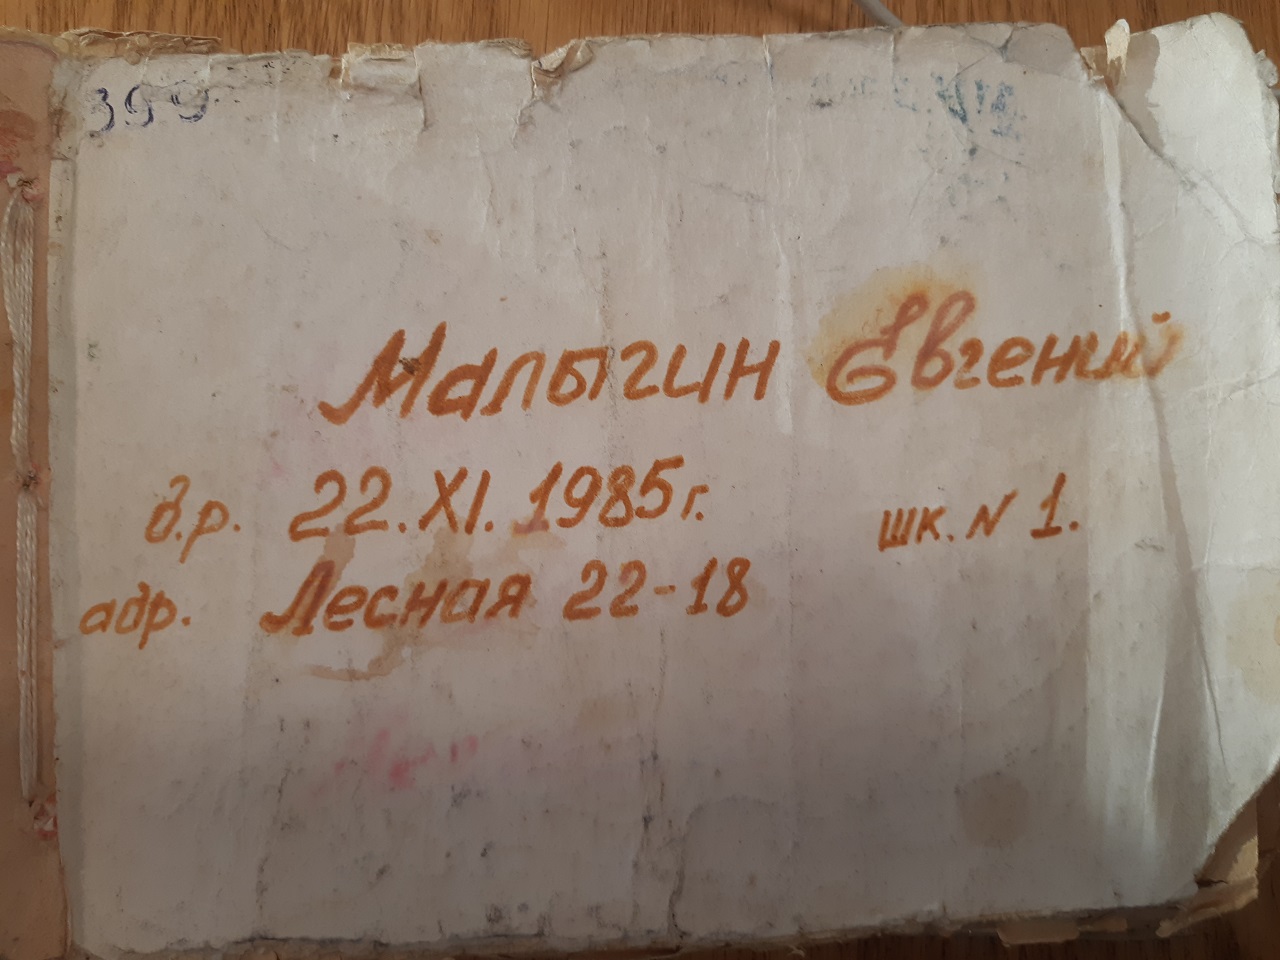 399
Малыгин Евгений
д.р. 22.XI.1985г. шк. N 1.
адр. Лесная 22-18